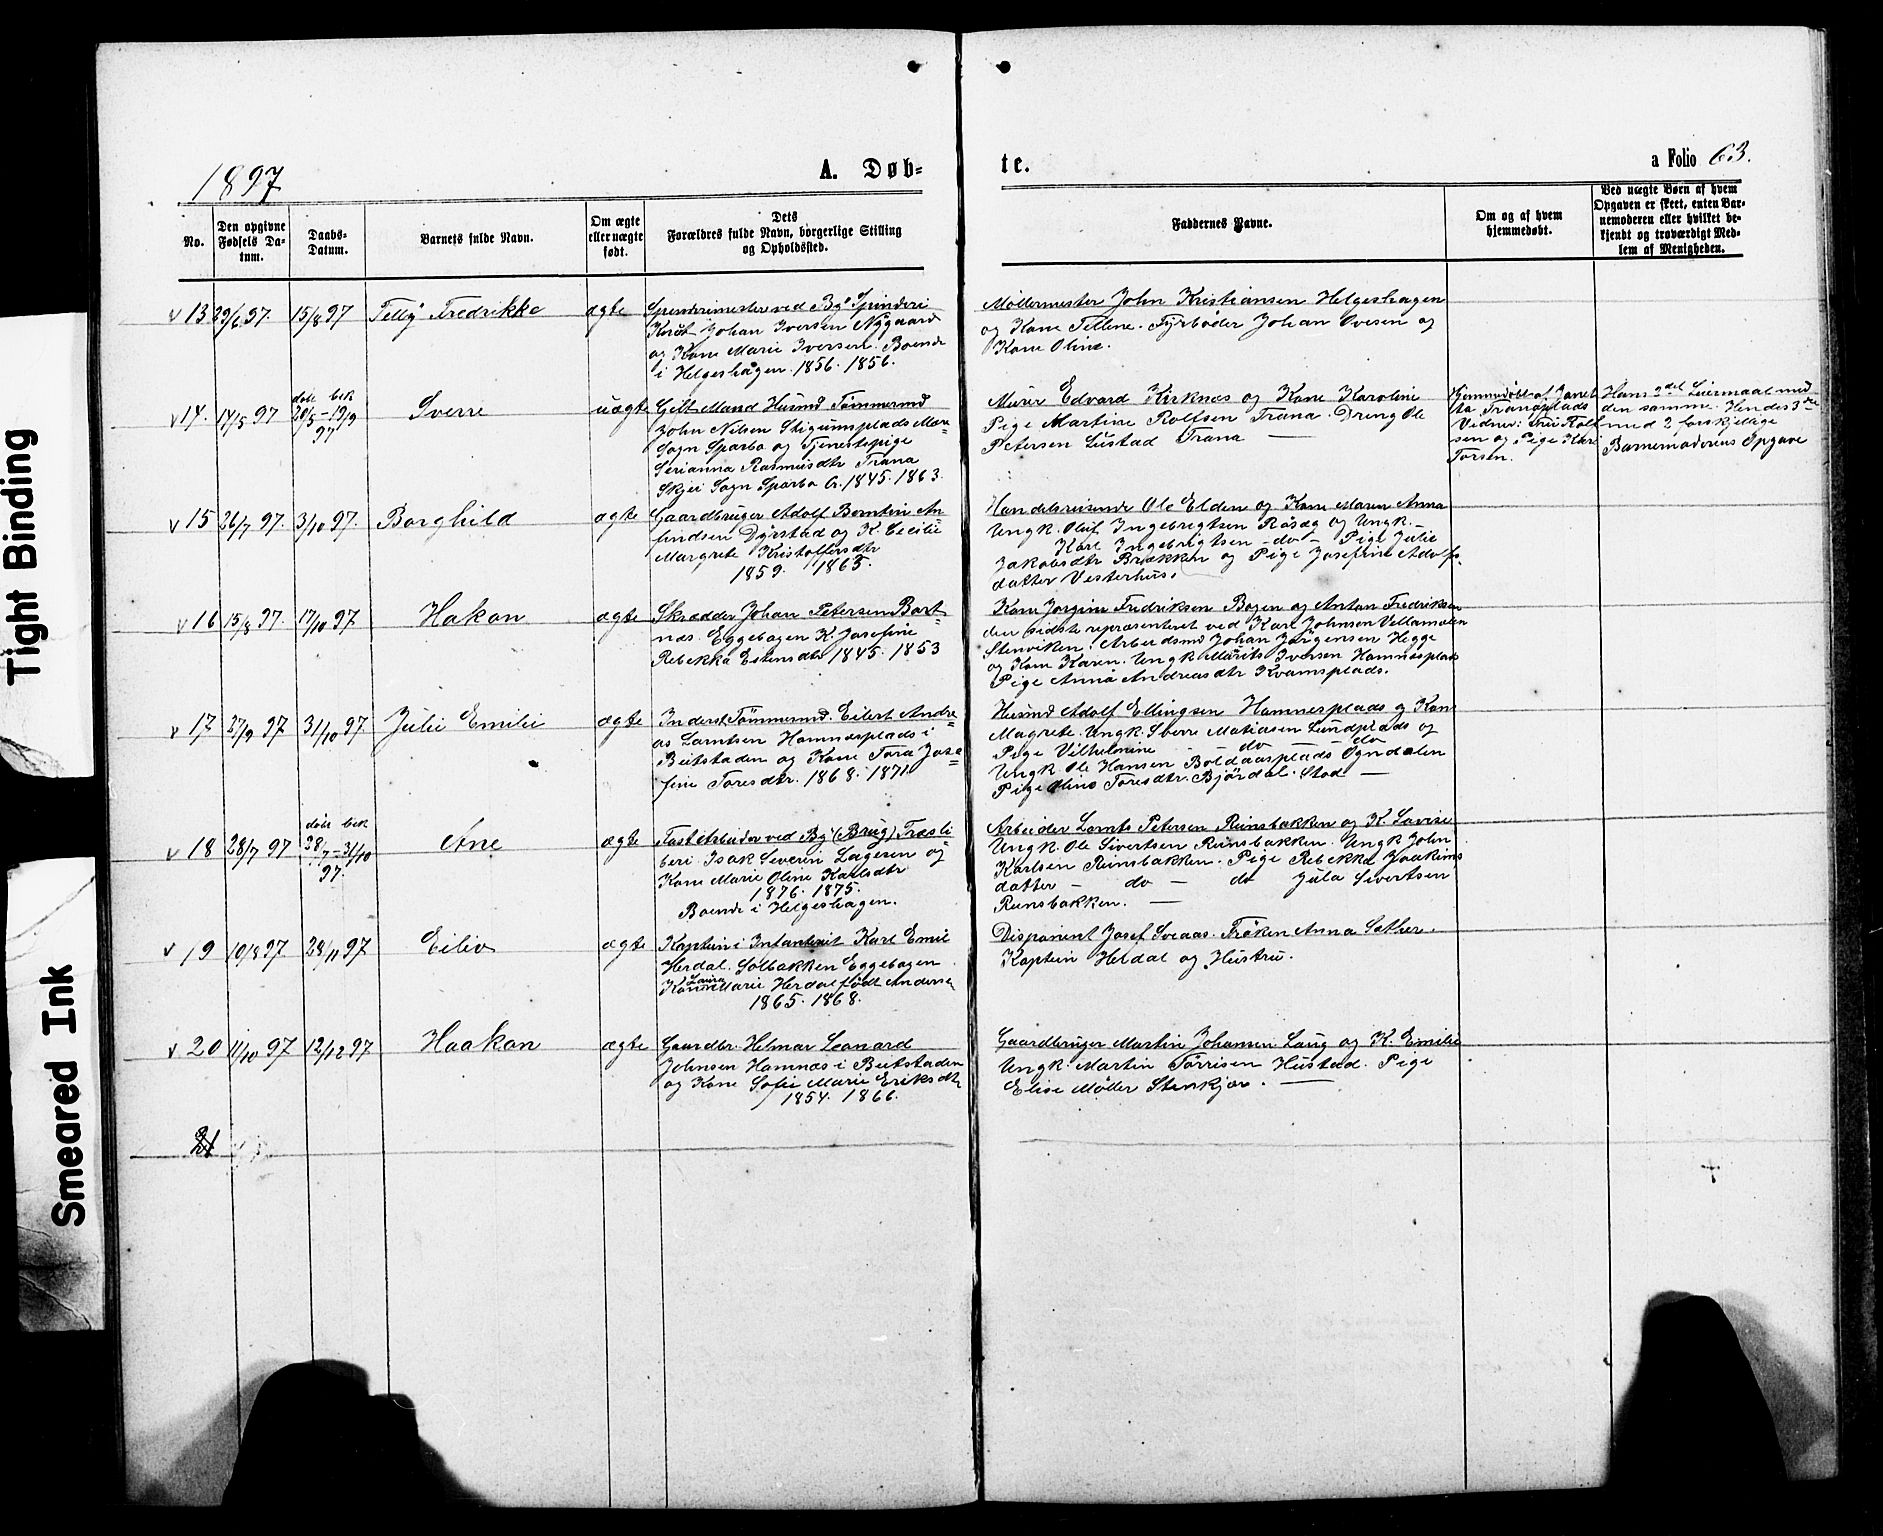 Tight Binding
Smeared Ink
1897
A. Døb-
te.
a Folio 63.
No.
Den opgivne
Fødsels Da-
tum.
Daabs-
Datum.
Barnets fulde Navn.
Om ægte
eller uægte
født.
Dets
Forældres fulde Navn, borgerlige Stilling
og Opholdssted.
Faddernes Navne.
Om og af hvem
hjemmedøbt.
Ved uægte Børn af hvem
Opgaven er skeet, enten Bar-
nemoderen eller hvilket be-
kjendt og troværdigt Med-
lem af Menigheden.
v 13 29/6 97. 15/8 97 Telly Fredrikke ægte
Spinderimester ved By's Spinderi
Knut Johan Iversen Nygaard
og Kone Marie Iversen. Boende
i Helgeshagen. 1856. 1856.
Møllermester John Kristiansen Helgeshagen
og Kone Telline. Fyrbøder Johan Ovesen og
Kone Oline.
v 14. 14/5 97
døbt bek
20/5 - 19/9
97
Sverre uægte
Gift Mand Husmd Tømmermd
John Nilsen Stigumsplads Mære
Sogn Sparbo og Tjenestepige
Serianna Rasmusdtr Trana
Skjei Sogn Sparbo Gr. 1845. 1863.
Murer Edvard Kirknæs og Kone Karoline
Pige Martine Rolfsen Trana. Dreng Ole
Petersen Lustad Trana —
Hjemmedøbt af
Tranaplads
Vidner:
sen og Pige Kari
Torsen.
Hans 2det Leiermaal med
den samme. Hendes 3die
med 2 forskjellige
Barnemoderens Opgave
v 15 26/7 97. 3/10 97. Borghild ægte
Gaardbruger Adolf Berntin An
findsen Dyrstad og K. Cecilie
Margrete Kristoffersdtr
1859. 1865.
Handelsreisende Ole Elden og Kone Maren Anna
Ungk. Oluf Ingebrigtsen Røsæg og Ungk. -
Karl Ingebrigtsen - do - Pige Julie
Jakobsdtr Brækken og Pige Josefine Adolfs
datter Vesterhus.
v 16 15/8 97. 17/10 97. Hakon ægte
Skrædder Johan Petersen Bart
næs. Eggebogen K. Josefine
Rebekka Estensdtr 1845. 1853
Kone Jorgine Fredriksen Bogen og Anton Fredriksen
den sidste repræsenteret ved Karl Johnson Vellamælen
Stenviken. Arbeidsmd Johan Jørgensen Hegge
og Kone Karen. Ungk Mårits Iversen Hamnesplads
Pige Anna Andreasdtr Kvamsplads.
v 17 27/9 97 31/10 97 Julie Emilie ægte
Inderst Tömmermd. Eilert Andre=
as Larntsen Hamnesplads i
Beitstaden og Kone Tora Jose=
fine Toresdtr. 1868. 1871
Husmd Adolf Ellingsen Hamnesplads og Kone
Magrete. Ungk. Sverre Matiasen Lundplads og
Pige Vilhelmine do do
Ungk. Ole Hansen Boldaasplads Ogndalen
Pige Oline Toresdtr. Bjørdal. Stod —
v 18 28/7 97
døbt bek
28/7 - 31/10
97
Ane ægte
Fast Arbeider ved By (Brug) Træsli
beri Isak Severin Lagesen og
Kone Marie Oline Karlsdtr
1876. 1875.
Boende i Helgeshagen.
Arbeider Lornts Petersen Reinsbakken og K. Lovise
Ungk. Ole Sivertsen Reinsbakken. Ungk John
Karlsen Reinsbakken. Pige Rebekka Joakims
datter - do - do Jula Sivertsen
Reinsbakken. —
v 19 10/8 97 28/11 97 Eiliv ægte
Kaptein i Infanteriet Karl Emil
Herdal. Solbakken Eggebogen
Kone Laura Marie Herdal født Andersen
1865. 1868.
Disponent Josef Sveaas. Frøken Anna Sather.
Kaptein Heldal og Hustru.
v 20 11/10 97 12/12 97 Haakon ægte
Gaardbr. Helmer Leonard
Johnsen Hamnæs i Beitstaden
og Kone Sofie Marie Eriksdtr
1854. 1866.
Gaardbruger Martin Johansen Laug og K. Emilie
Ungk. Martin Torrisen Hustad. Pige
Elise Møller Stenkjær. —
21